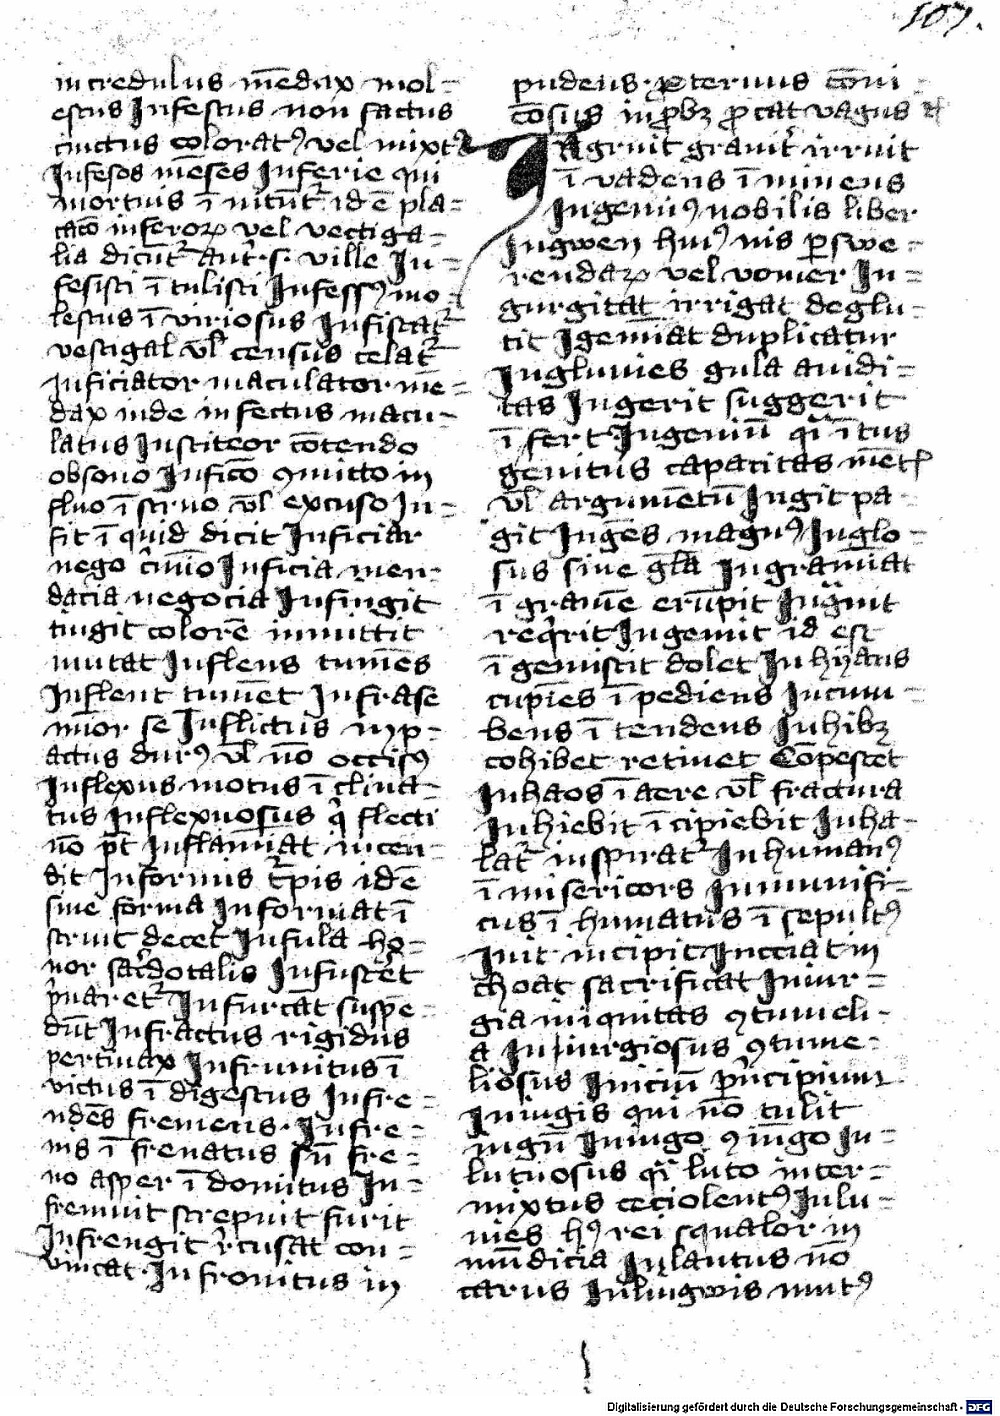 107.
incredulus mēdax mol=
estus Infestus non factus
tinctus colorat9 vel mixt9
Infesos mēses Inferie qui
mortuis ī nitūt᷑ id ē pla=
tacō inferoꝝ vel vectiga=
lia dicūt᷑ aūt᷑ .s. ville In=
fesisti ī tulisti Infess9 mo=
lestus ī viriosus Infiscat᷑
vestigal vl̄ census celat᷑
Inficiator maculator mē=
dax inde infectus macu=
latus Insciteor cōtendo
obsono Inficō ꝯmitto in
fluo ī struo vl̄ excuso In=
fit ī quid dicit Inficiar
nego c̄mīo Inficia men=
dacia negocia Infingit
tingit colorē inmittit
mutat Inflens tumēs
Inflent tumēt Infrase
mīor se Inflictus inp=
actus dur9 vl̄ nō occisus
Inflexus motus ī clina=
tus Inflexuosus q̄ flecti
nō pt̄ Inflāmat incen=
dit Informis t᷑pis id ē
sine forma Informat ī
struit decet Infula ho=
nor sac᷑dotalis Infuscēt
p᷑uaret᷑ Infurcāt suspē=
dūt Infractus rigidus
pertinax Infrunitus ī
victus ī digestus Infre=
ndēs fremens. Infre=
nis ī frenatus sn̄ fre=
no asper ī domitus In=
fremuit strepuit furit
Infrengit r᷑cusat con=
vincat. Infronitus in
pudens. ꝓteruus cōui=
cōsus inꝓbꝫ ꝓcat vagus
Ingruit grauit᷑ irruit
ī vadens ī minens
Ingenu9 nobilis liber
Ingwen hui9 nis ꝑswe=
rendaꝝ vel vomer In=
gurgitat irrigat deglu=
tit Igemīat duplicatur
Ingluuies gula auidi=
tas Ingerit suggerit
ī fert Ingeniū q̄i ītus
genitus capacitas mēt
vl̄ argumētū Ingit pa=
git Ingēs magn9 Inglo=
sus sine gl̄a Ingrāmat
ī grauē erūpit Ingīuit
req᷑rit Ingemit id est
ī gemiscit dolet Inhyans
cupiēs ī pediens Incum=
bens ī tendens Inhibꝫ
cohibet retinet Cōpescet
Inhaos ī aere vl̄ fractura
Inhiebit ī cipiebit Inha=
lat᷑ inspirat᷑ Inhuman9
ī misericors Inmunifi=
cus ī humatus ī sepult9
Init incipit Incciat in
choat sacrificat Iniur=
gia iniquitas ꝯtumeli=
a Iniurgiosus ꝯtume=
liosus Iniciū p᷑ncipium
Iniugis qui nō tulit
iugū Iniugo ꝯiūgo In=
lutuosus q̄i luto inter=
mixtus ceciolent9 Inlu=
uies h9 rei squalor in
mūdicia Inlautus nō
carus Inlingwis mut9
Digitalisierung gefördert durch die Deutsche Forschungsgemeinschaft - DFG